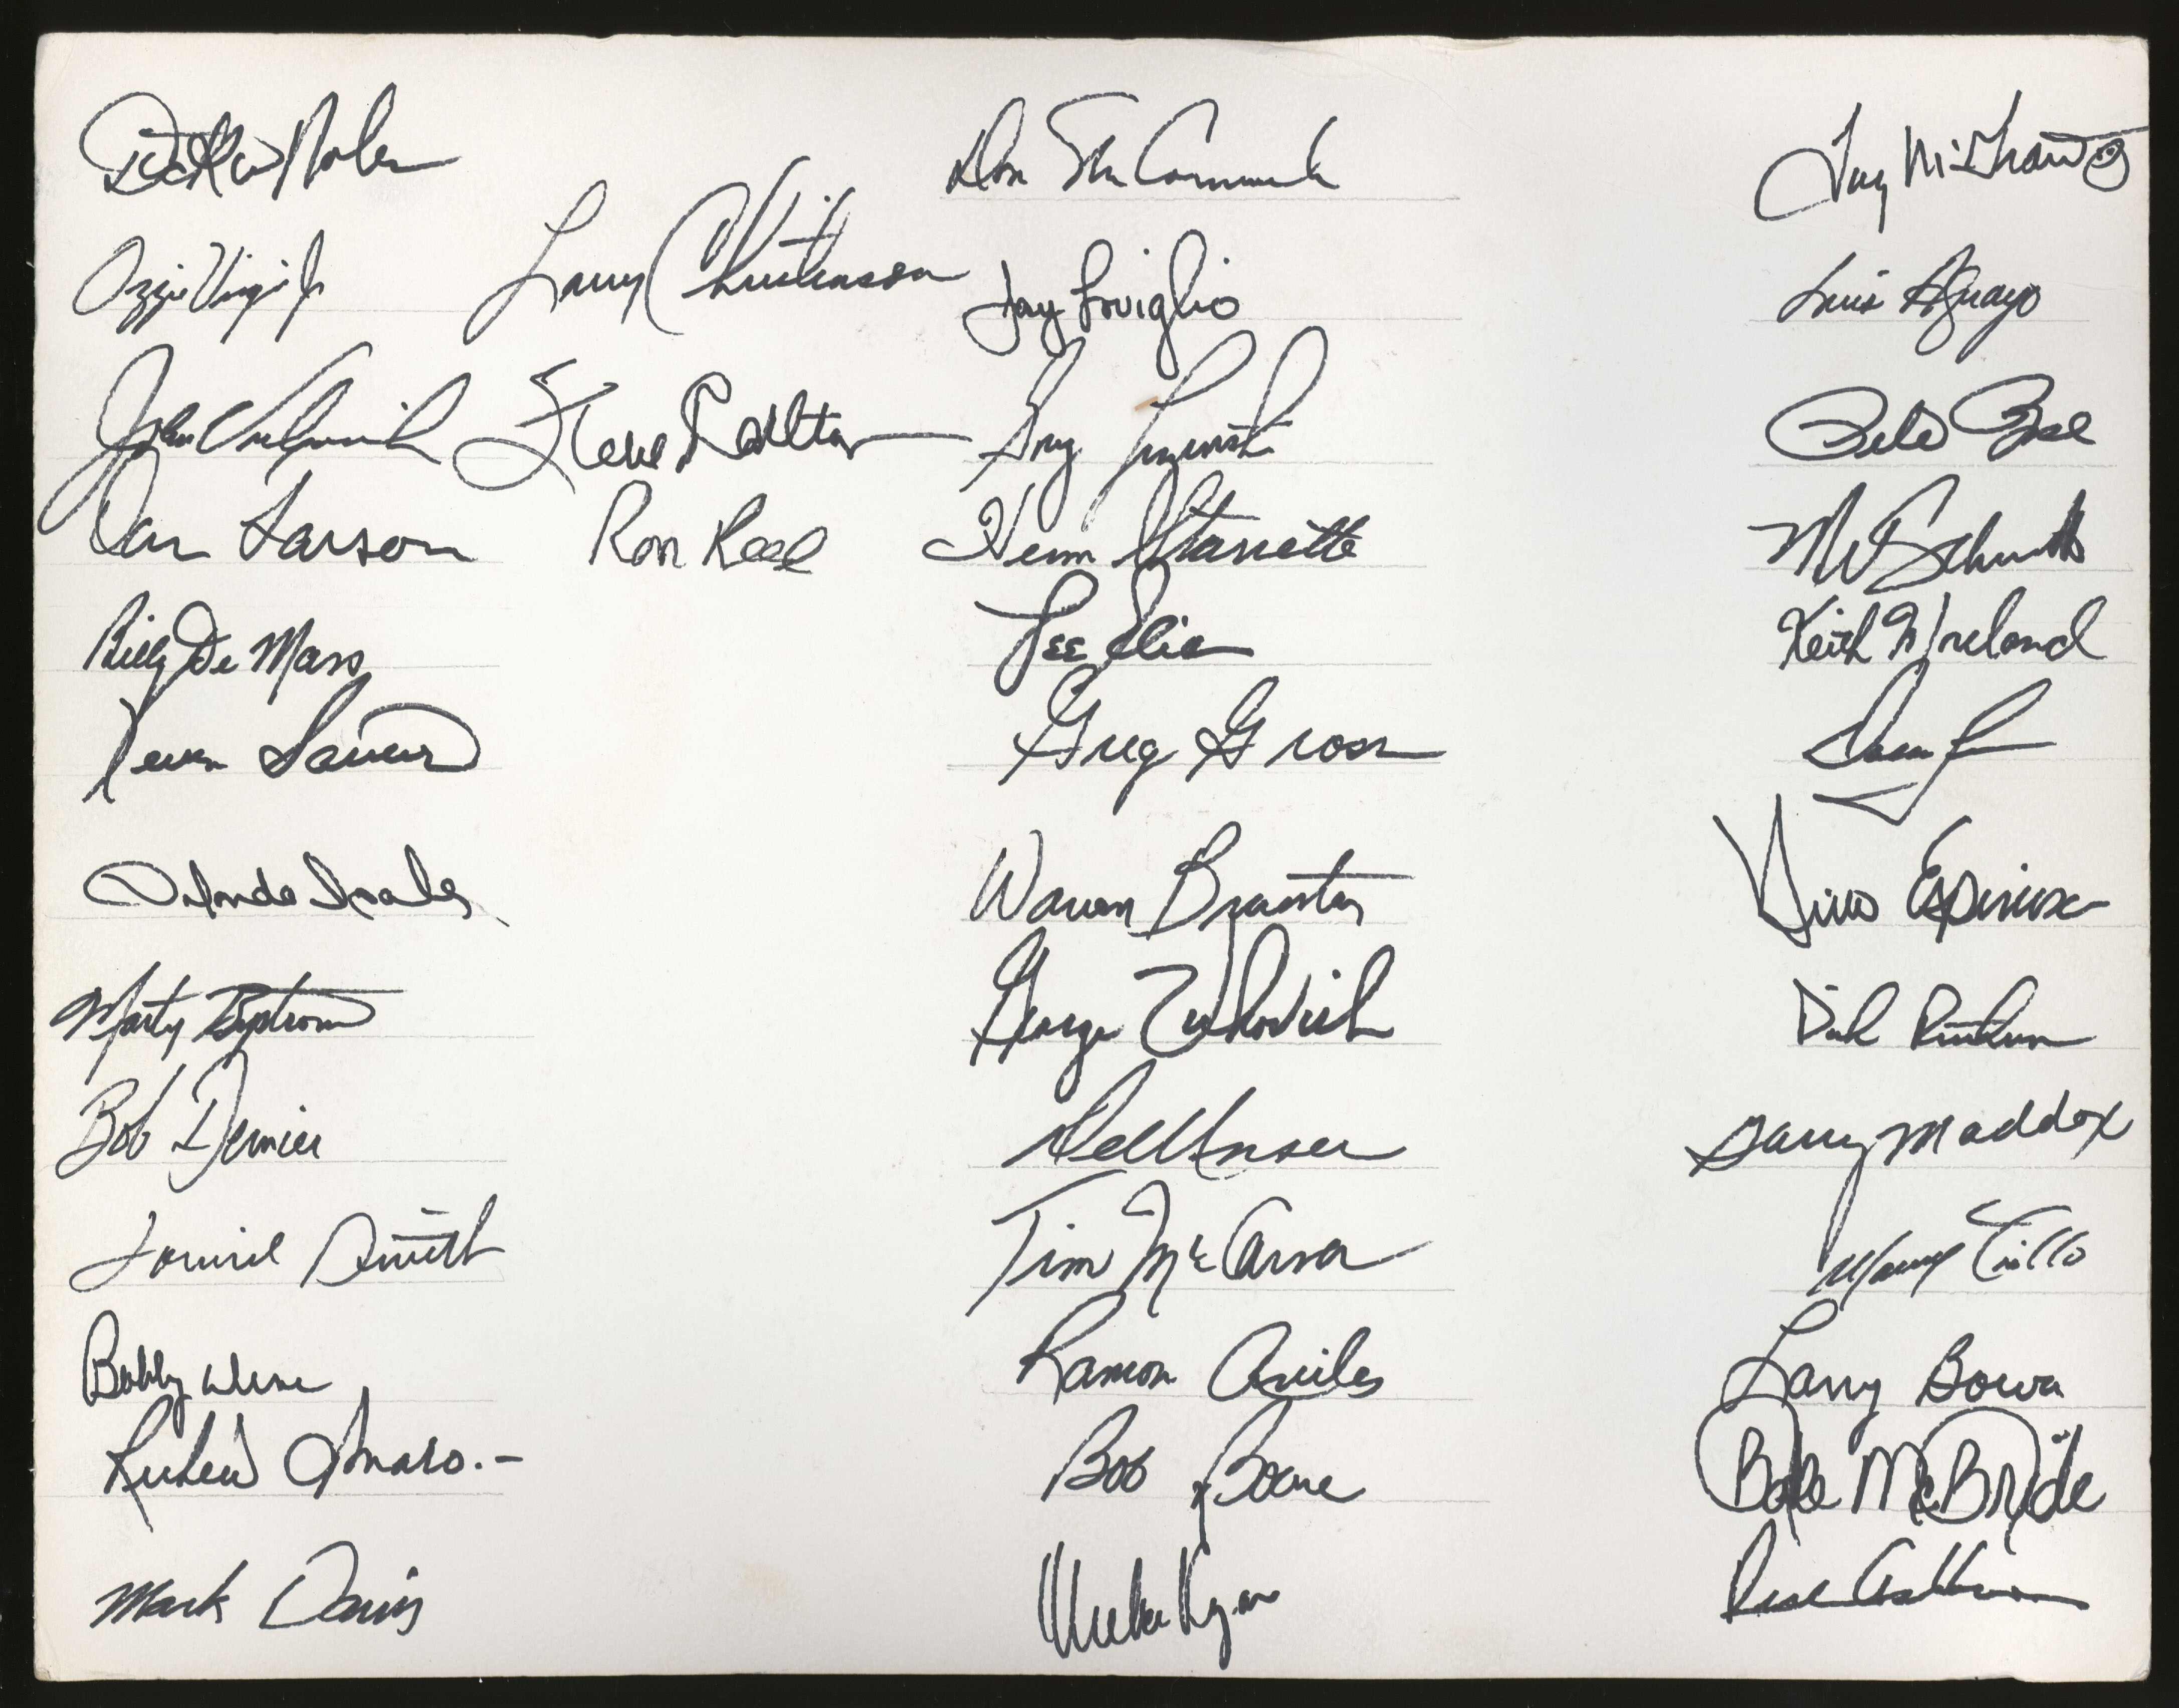 Dickie Noles
Ozzie Virgil Jr
John Vukovich
Dan Larson
Billy De Mars
Kevin Saucier
Orlando Isales
Marty Bystrom
Bob Dernier
Lonnie Smith
Bobby Wine
Ruben Amaro.-
Mark Davis
Larry Christenson
Steve Carlton
Ron Reed
Don McCormack
Jay Loviglio
Greg Luzinski
Herm Starrette
Lee Elia
Greg Gross
Warren Brusstar
George Vukovich
Del Unser
Tim McCarver
Ramon Aviles
Bob Boone
Mike Ryan
Tug McGraw
Luis Aguayo
Pete Rose
Schmidt
Keith Moreland
Nino Espinosa
Dick Ruthven
Garry Maddox
Manny Trillo
Larry Bowa
Bake McBride
Ashburn